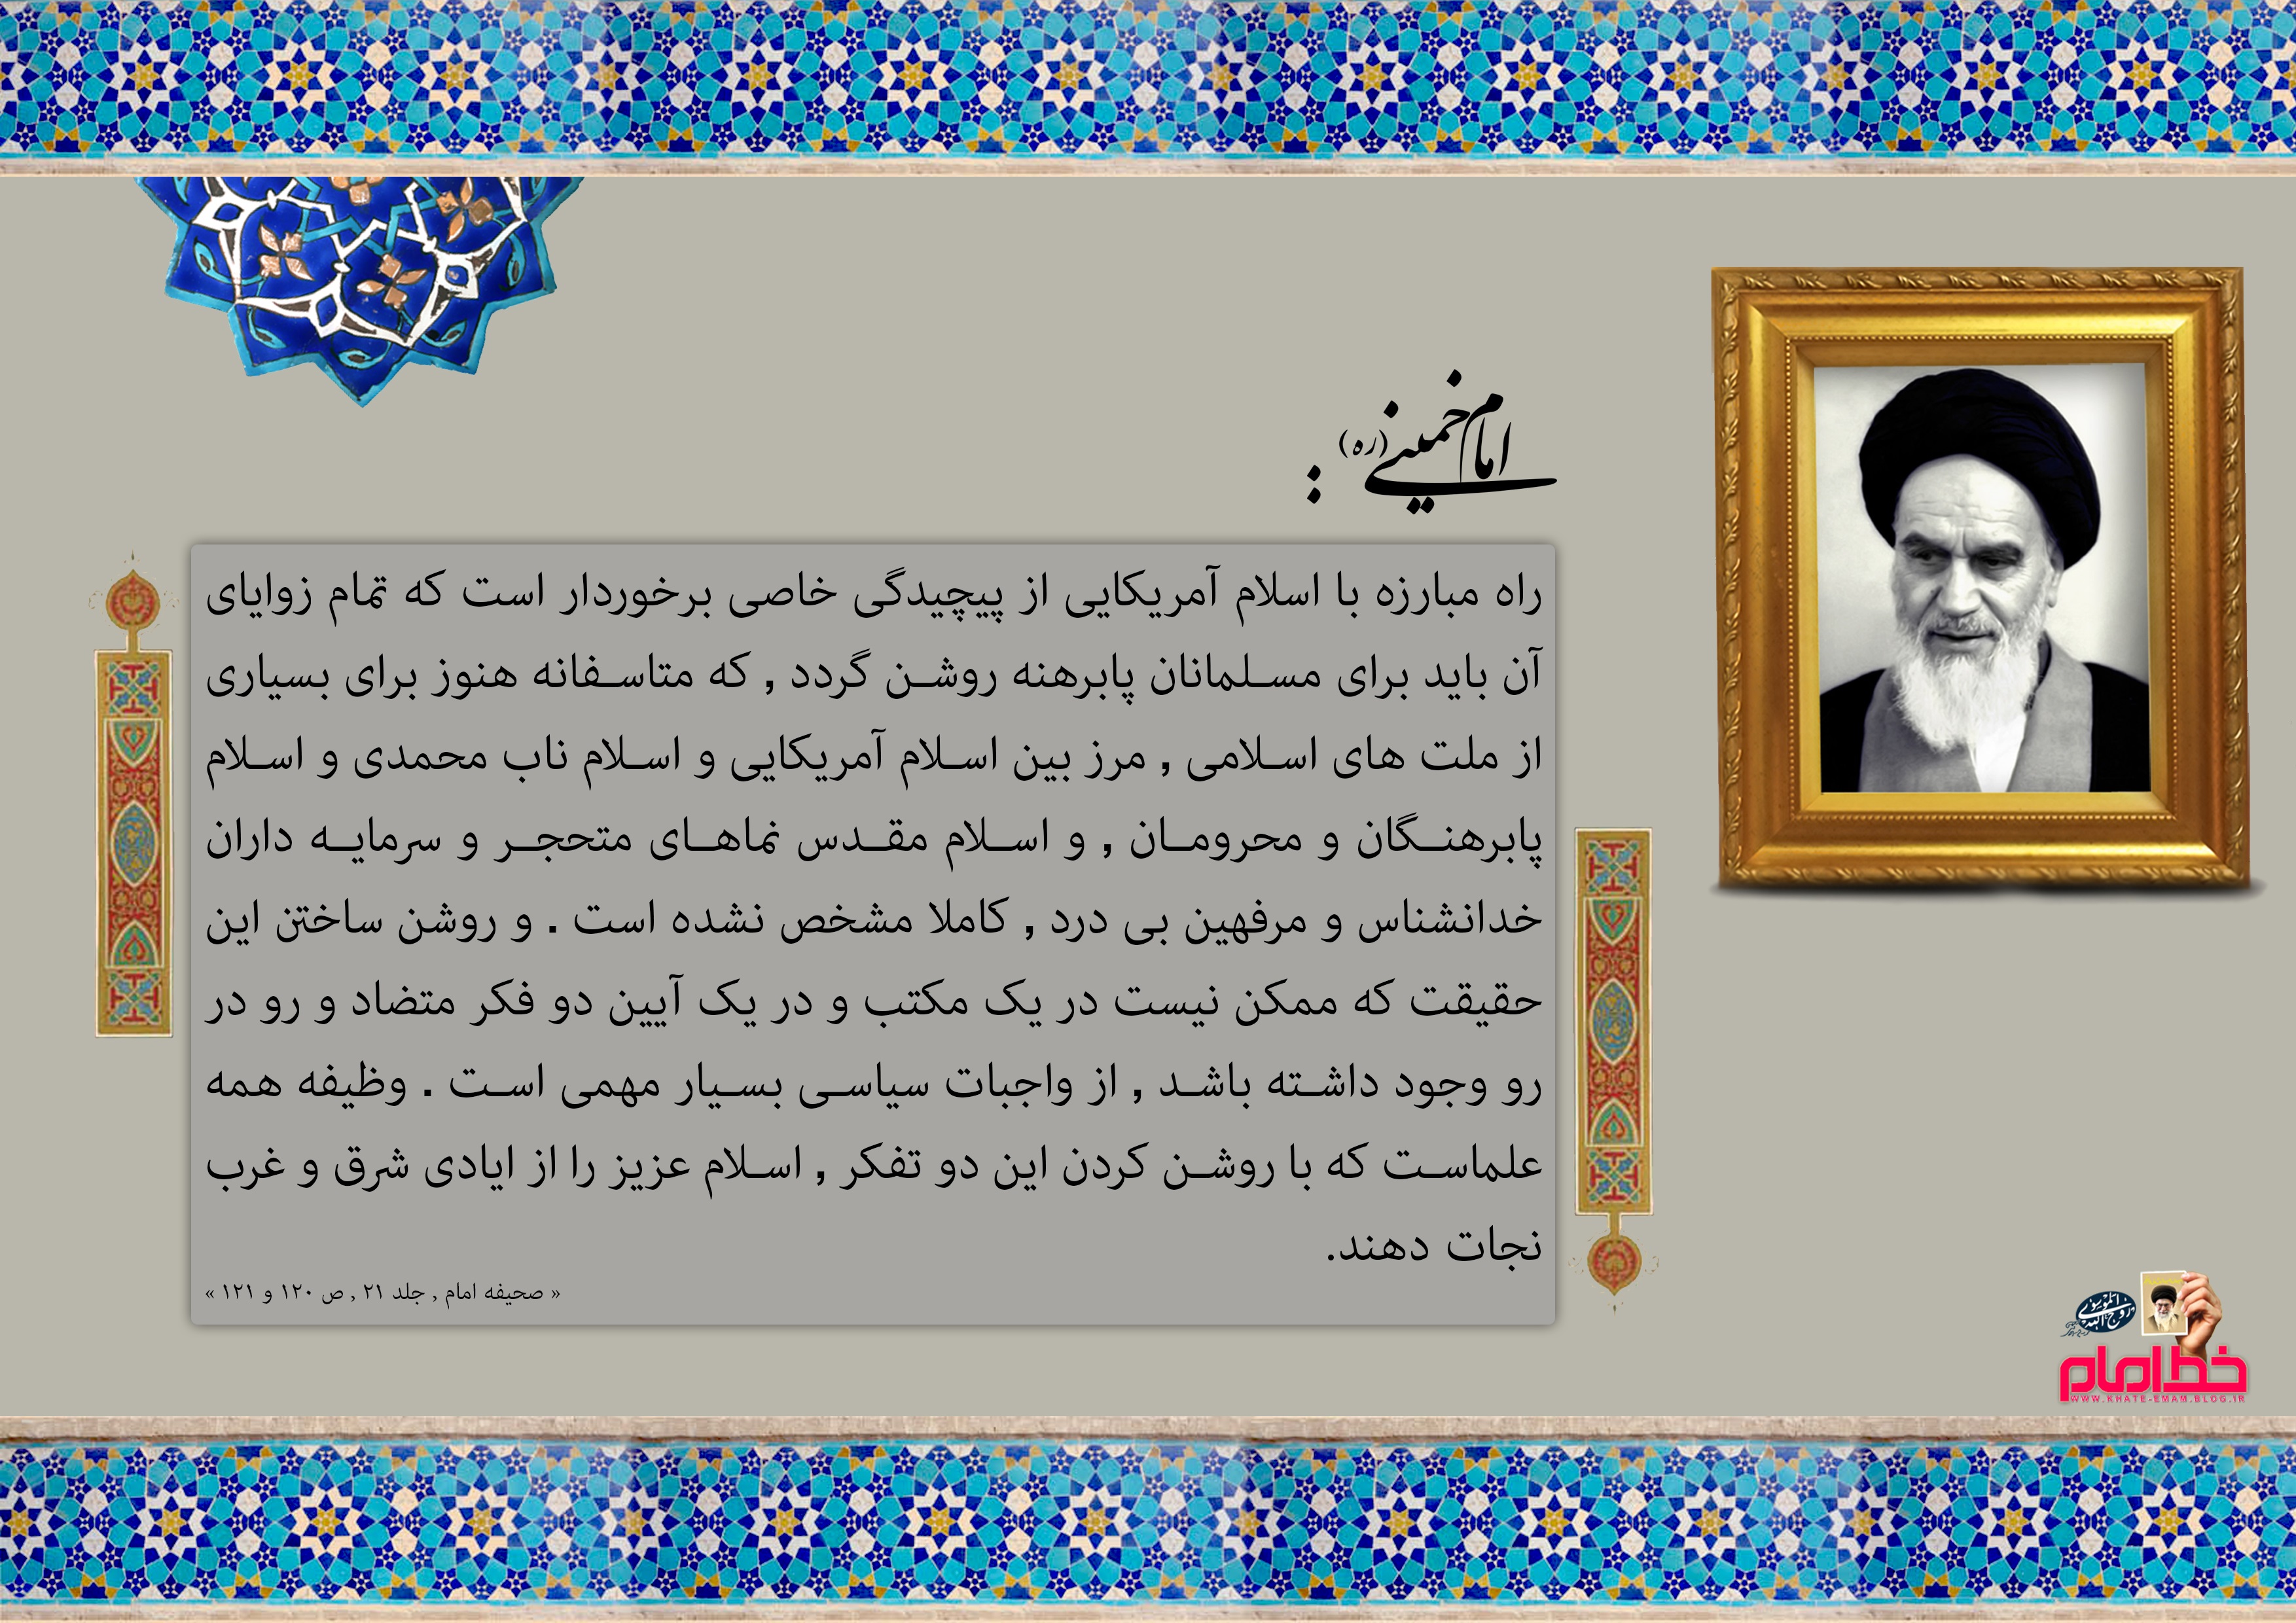 امام خمینی (ره) :
راه مبارزه با اسلام آمریکایی از پیچیدگی خاصی برخوردار است که تمام زوایای
آن باید برای مسلمانان پابرهنه روشن گردد , که متاسفانه هنوز برای بسیاری
از ملت های اسلامی , مرز بین اسلام آمریکایی و اسلام ناب محمدی و اسلام
پابرهنگان و محرومان , و اسلام مقدس نماهای متحجر و سرمایه داران
خدانشناس و مرفهین بی درد , کاملا مشخص نشده است . و روشن ساختن این
حقیقت که ممکن نیست در یک مکتب و در یک آیین دو فکر متضاد و رو در
رو وجود داشته باشد , از واجبات سیاسی بسیار مهمی است . وظیفه همه
علماست که با روشن کردن این دو تفکر , اسلام عزیز را از ایادی شرق و غرب
نجات دهند.
« صحیفه امام , جلد ۲۱ , ص ۱۲۰ و ۱۲۱ »
روح الله الموسوی
خط امام
WWW.KHATE-EMAM.BLOG.IR